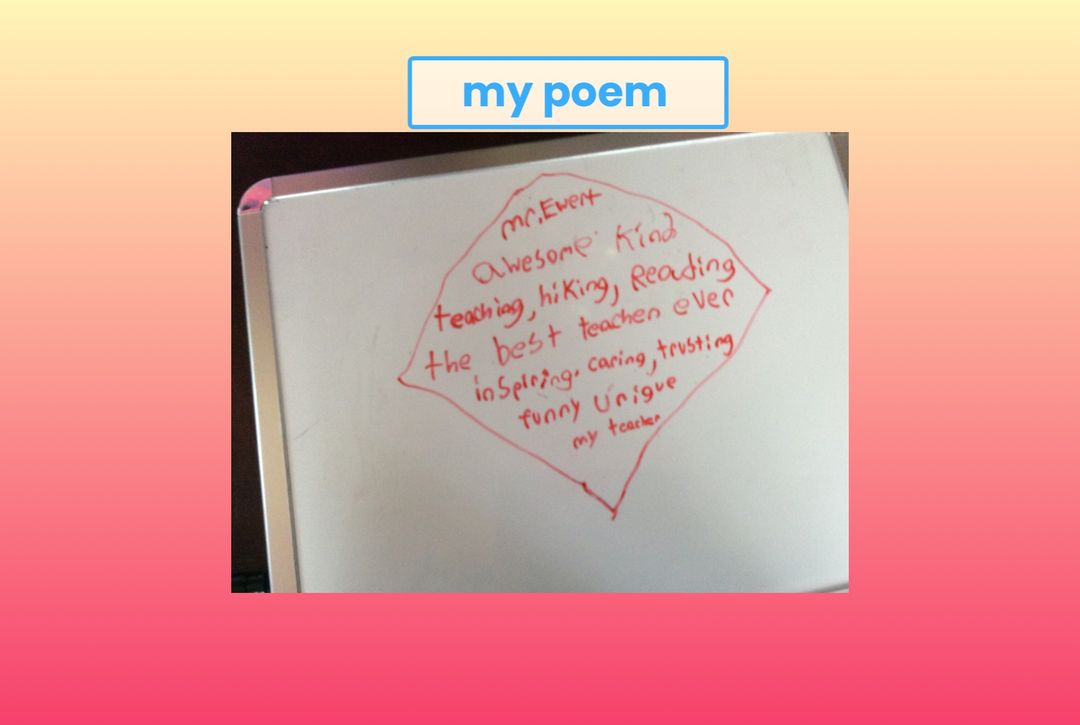 my poem
mr. Ewert
awesome kind
teaching, hiking, Reading
the best teacher ever
inspiring, caring, trusting
funny unique
my teacher